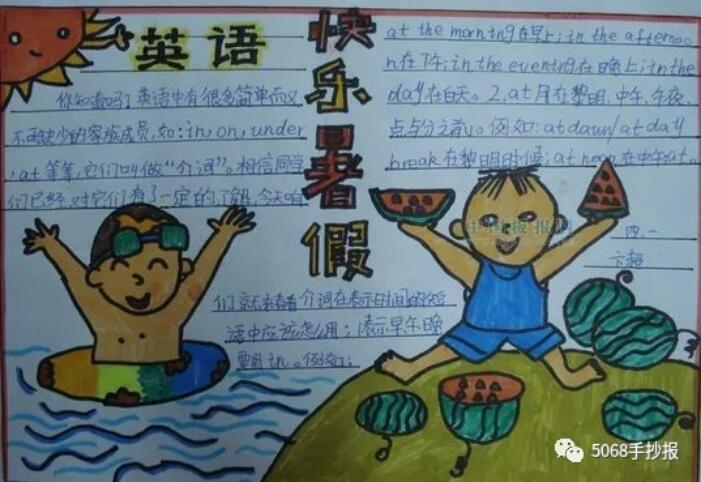 英语
快乐暑假
你知道吗？英语中有很多简单而又
不可缺少的家族成员,如:in,on,under
,at等等,它们叫做“介词”。相信同学
们已经对它们有了一定的了解,今天咱
们就来看看介词在表示时间的短
语中应该怎么用；1表示早午晚
要用in。例如：
at the morning在早上；in the afternoo
n在下午；in the evening在晚上；in the
day在白天。2,at用在黎明、中午、午夜、
点与分之前。例如：at dawn/at day
break在黎明时候；at noon在中午at。
四.一
中国板报网
5068手抄报